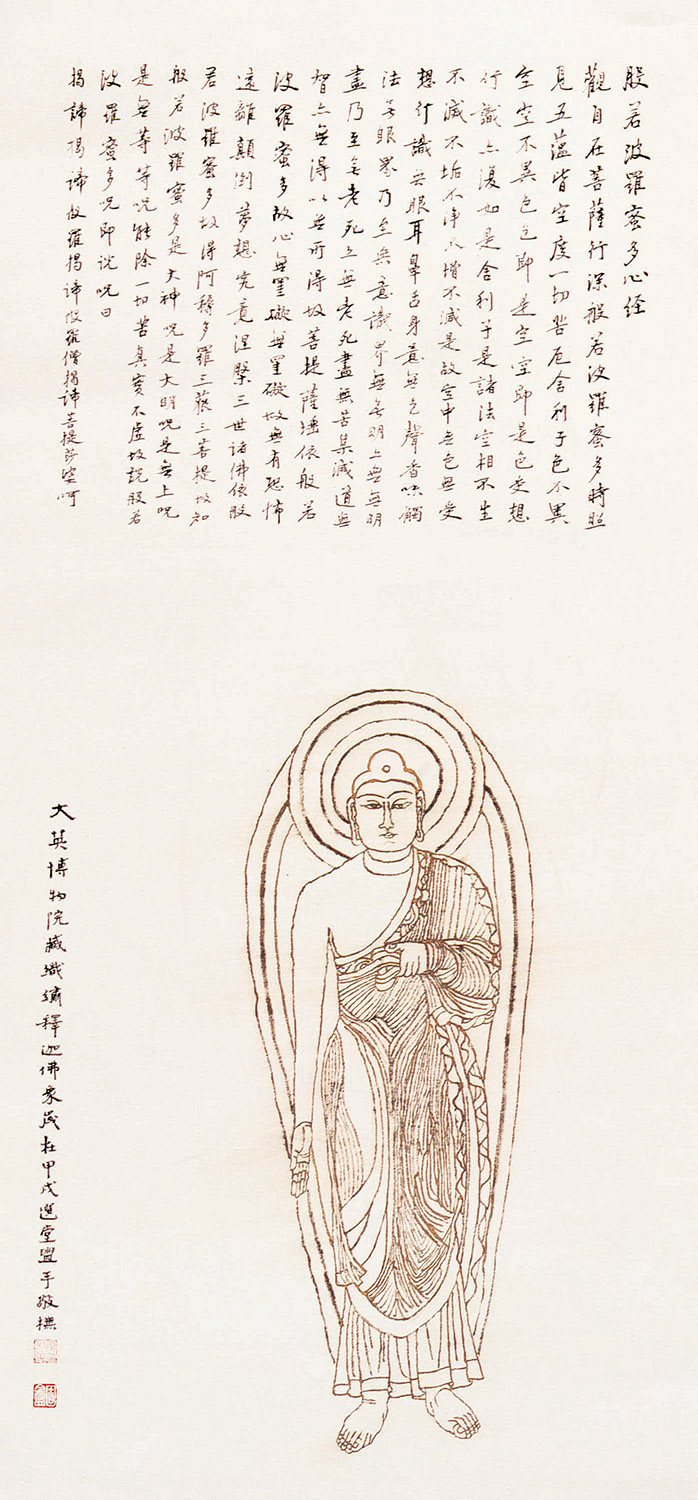 般若波羅蜜多心经
觀自在菩薩行深般若波羅蜜多時照
見五蕴皆空度一切苦厄舍利子色不異
空空不異色色即是空空即是色受想
行識亦復如是舍利子是諸法空相不生
不滅不垢不净不增不減是故空中无色无受
想行識无眼耳鼻舌身意無色聲香味觸
法无眼界乃至無意識界無无明亦無無明
盡乃至无老死亦無老死盡無苦集滅道無
智亦無得以無所得故菩提薩埵依般若
波羅蜜多故心無罣礙無罣礙故無有恐怖
遠離顛倒夢想究竟涅槃三世諸佛依般
若波羅蜜多故得阿耨多羅三藐三菩提故知
般若波羅蜜多是大神呪是大明呪是無上呪
是無等等呪能除一切苦真實不虛故説般若
波羅蜜多呪即说呪曰
揭諦揭諦般羅揭諦般羅僧揭諦菩提莎婆呵
大英博物院藏織繡釋迦佛象歲在甲戌選堂盥手敬橅